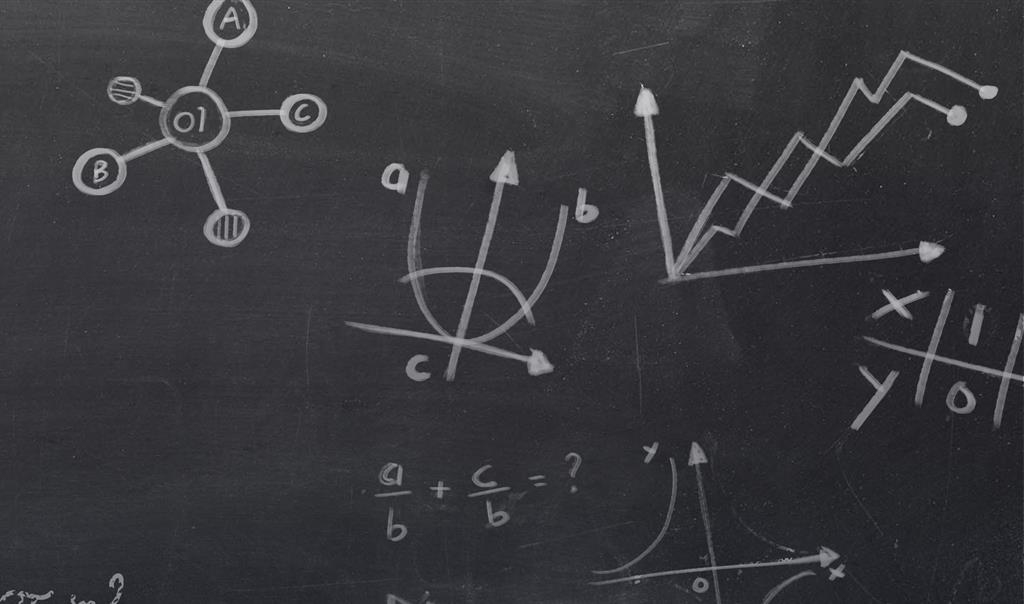 A
01
C
B
a
b
c
X 1
Y 0
a/b + c/b = ?
Y
0
X